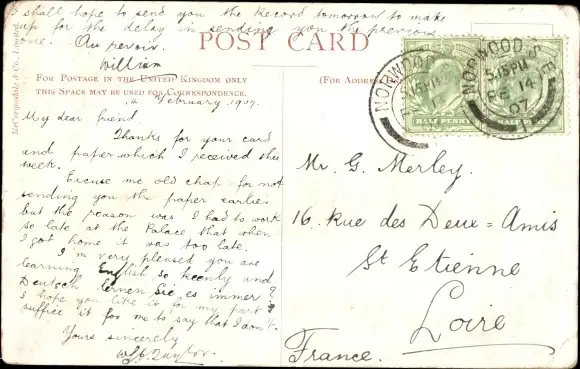 I shall hope to send you the Record tomorrow to make
up for the delay in sending you the previous
one. Au revoir.
William
POST CARD
FOR POSTAGE IN THE UNITED KINGDOM ONLY
THIS SPACE MAY BE USED FOR CORRESPONDENCE.
(FOR ADDRESS
14 February 1907.
My dear friend
Thanks for your card
and paper which I received this
week.
Excuse me old chap for not
sending you the paper earlier
but the reason was I had to work
so late at the Palace that when
I got home it was too late.
I'm very pleased you are
learning English so keenly and
Deutsch lernen Sie es immer?
I hope you like it for my part
suffice it for me to say that I don't.
Yours sincerely
Mr. G. Merley.
16. Rue des Deux=Amis
St Etienne
Loire
France.
NORWOOD
5.15PM
NORWOOD S.E
5.15PM
FE 14
07
HALF PENNY